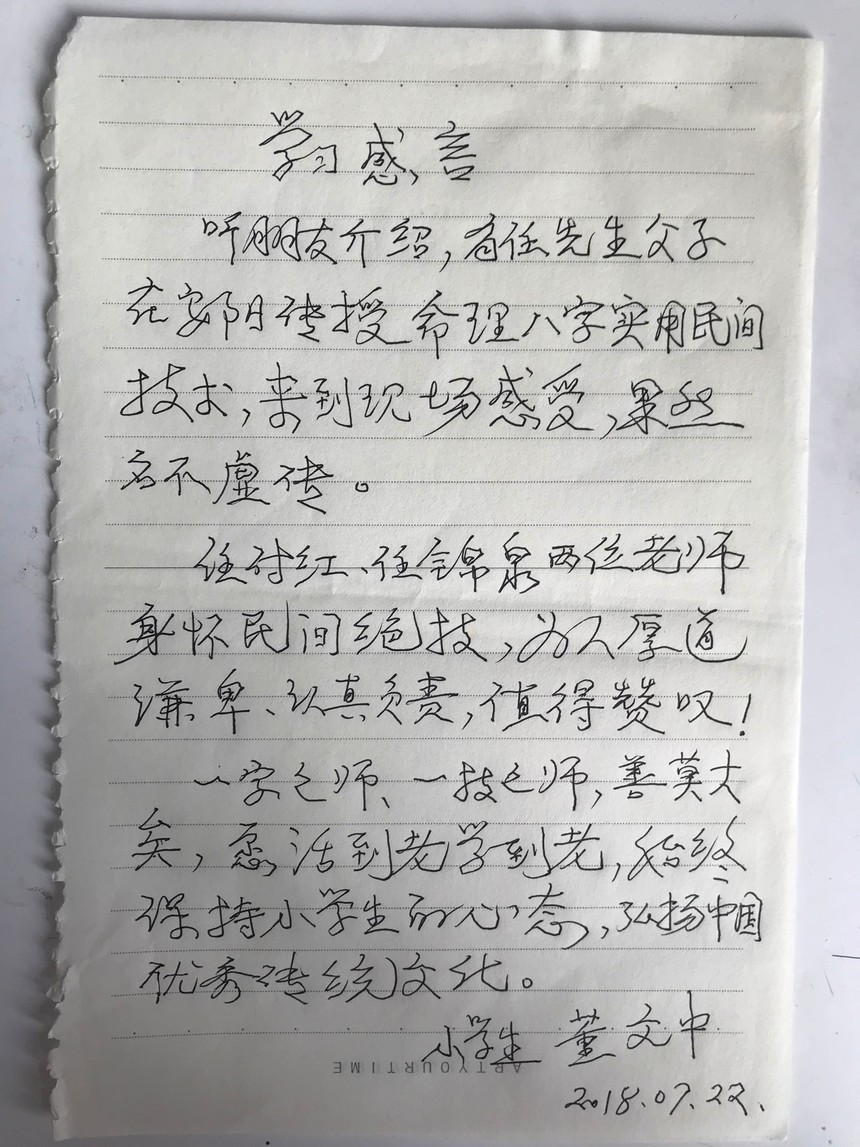 学习感言
听朋友介绍，有任先生父子
在安阳传授命理八字实用民间
技术，来到现场感受，果然
名不虚传。
任付红、任锦泉两位老师
身怀民间绝技，为人厚道
谦卑、认真负责，值得赞叹！
一字之师、一技之师，善莫大
矣，愿活到老学到老，始终
保持小学生的心态，弘扬中国
优秀传统文化。
小学生 董文中
ARTYOURTIME
2018.07.22.